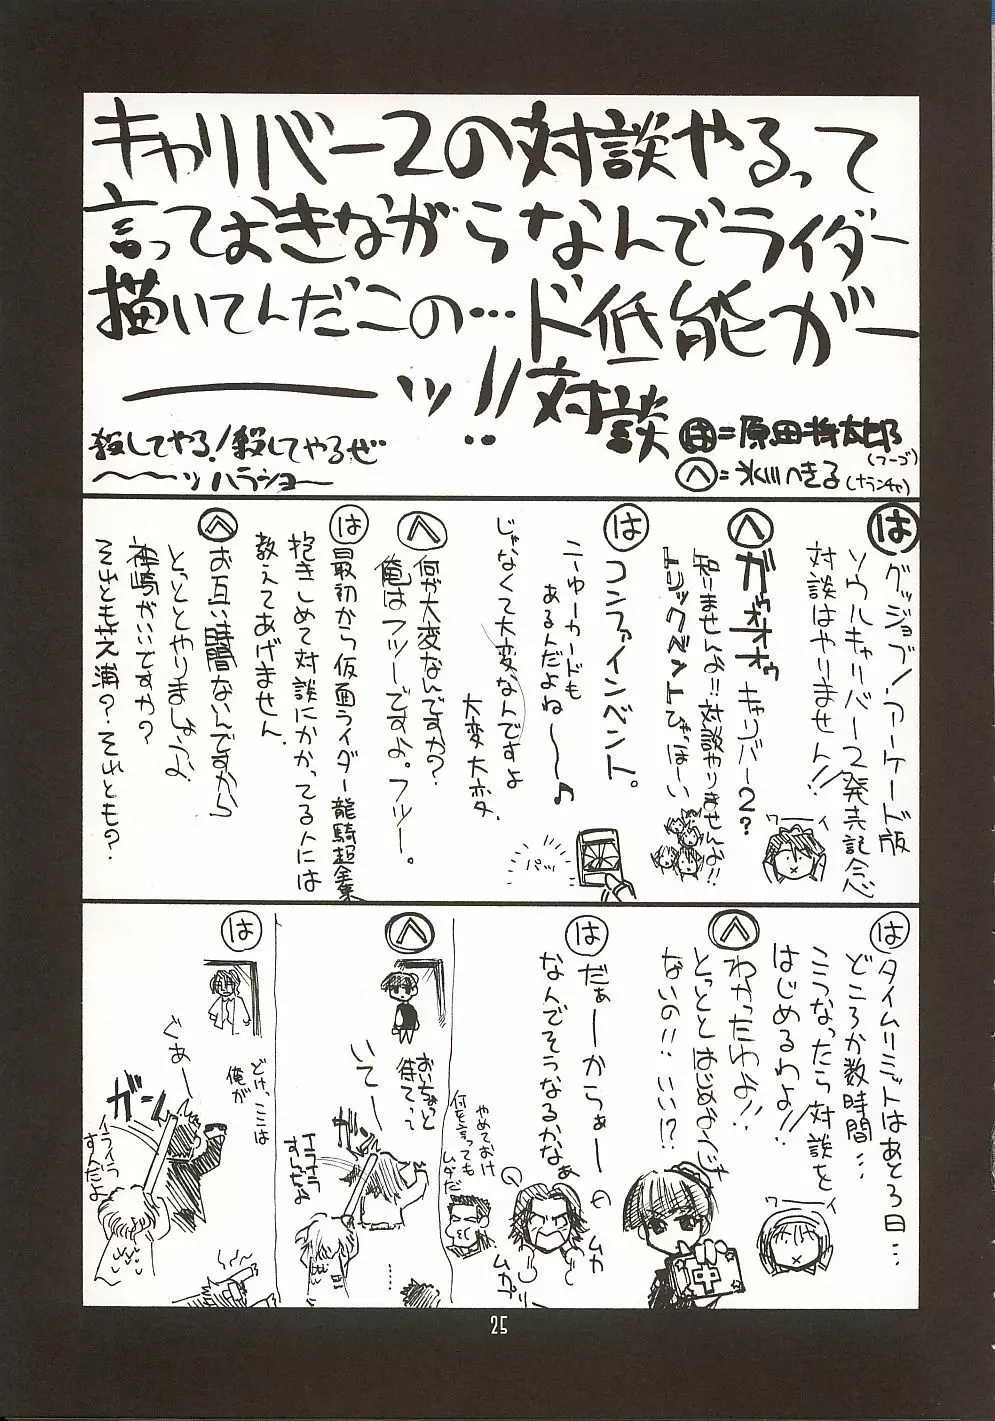 キャリバー2の対談やるって
言っておきながらなんでライダー
描いてんだこの…ド低能がー
ーーッ!!対談
殺してやる!殺してやるぜ
〜〜〜ッハラショー
は=原田将太郎
(フーゴ)
へ=氷川へきる(ナランチャ)
は
グッジョブ!アーケード版
ソウルキャリバー2発売記念
対談はやりません!!
ワーイ
へ
ガゥオオオゥ キャリバー2?
知りませんよ!!対談やりませんよ!!
トリックベントひゃほーい
は
コンファインベント。
ニューカードも
あるんだよね〜〜♪
じゃなくて大変なんですよ
大変大変
パッ
へ
何が大変なんですか?
俺はフツーですよ。フツー。
は
最初から仮面ライダー龍騎超全集
抱きしめて対談にかかってる人には
教えてあげません
へ
お互い時間ないんですから
とっととやりましょうよ
神崎がいいですか?
それとも芝浦?それとも?
は
タイムリミットはあと3日…
どころか数時間…
こうなったら対談を
はじめるわよ!!
ワーイ
へ
わかったわよ!!
とっととはじめればいい
ないの!!いい!?
中
は
だぁーからぁー
なんでそうなるかなぁ
ムカ
ムカ
やめておけ
何を言っても
ムダだ
へ
おいちょっと
待て
いてー
イライラ
すんだよ
は
どけ、ここは
俺が
ぐぁー
ガン
イライラ
すんだよ
25